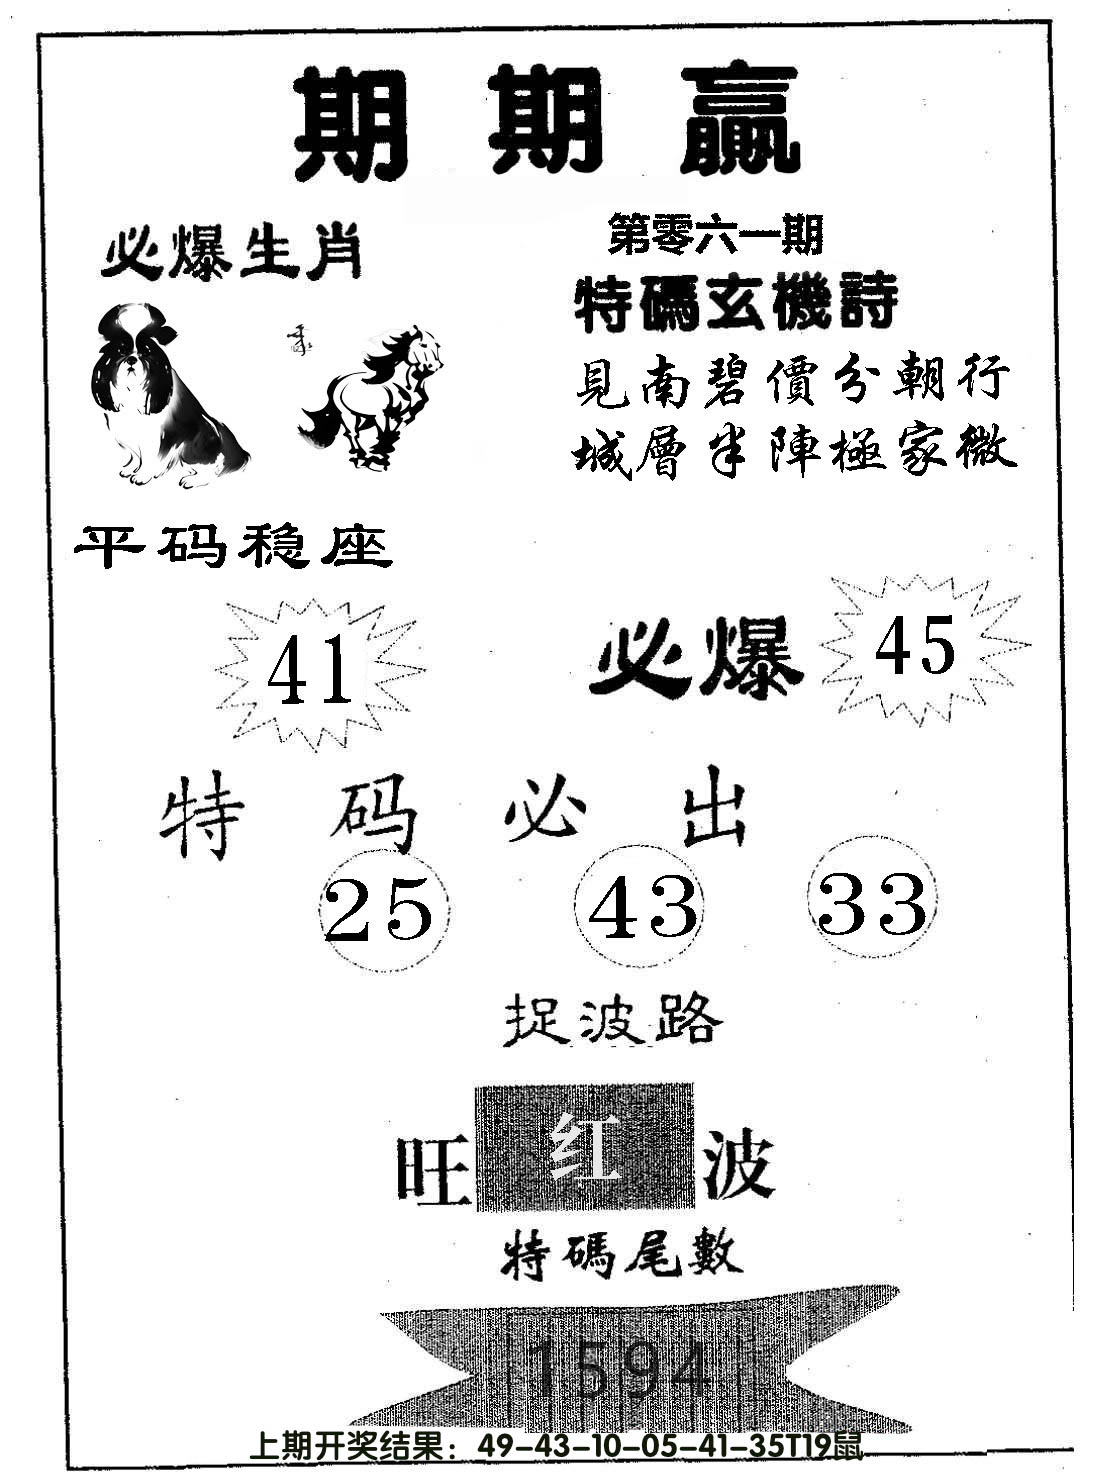 期期贏
必爆生肖
第零六一期
特碼玄機詩
見南碧價分朝行
城層半陣極家微
平码稳座
41
必爆 45
特码必出
25 43 33
捉波路
旺 红 波
特碼尾數
1594
上期开奖结果：49-43-10-05-41-35T19鼠